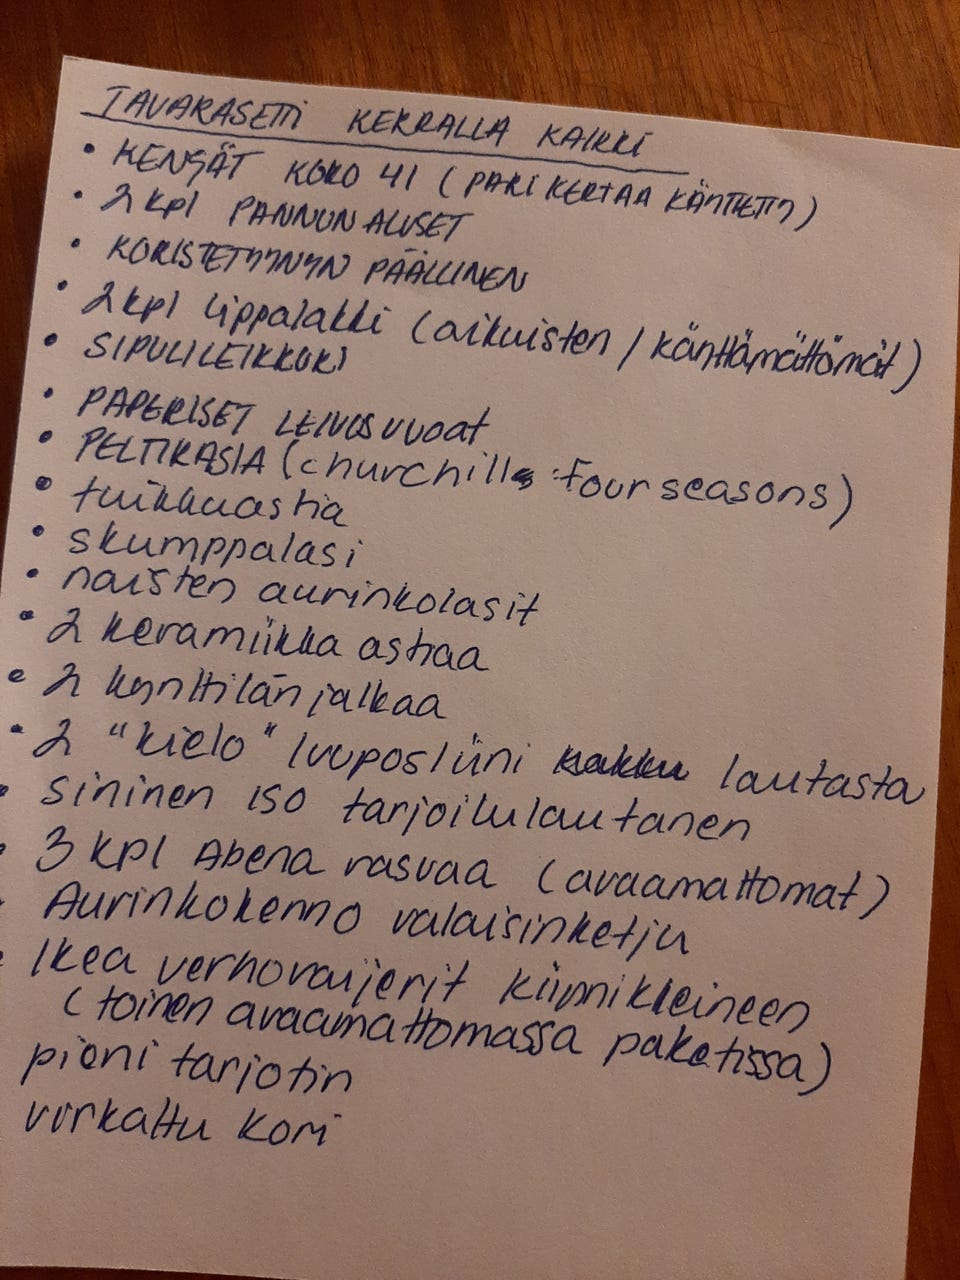 TAVARASETTI KERRALLA KAIKKI
• KENGÄT KOKO 41 (PARI KERTAA KÄYTETTY)
• 2 kpl PANNUN ALUSET
• KORISTETYYNYN PÄÄLLINEN
• 2 kpl lippalakki (aikuisten / käyttämättömät)
• SIPULILEIKKURI
• PAPERISET LEIVOSVUOAT
• PELTIRASIA (churchills four seasons)
• tuikkuastia
• skumppalasi
• naisten aurinkolasit
• 2 keramiikka astiaa
• 2 kynttilänjalkaa
• 2 "kielo" luuposliini lautasta
• sininen iso tarjoilulautanen
• 3 kpl Abena rasvaa (avaamattomat)
• Aurinkokenno valaisinketju
• Ikea verhovaijerit kiinnikkeineen
(toinen avaamattomassa paketissa)
pieni tarjotin
virkattu kori